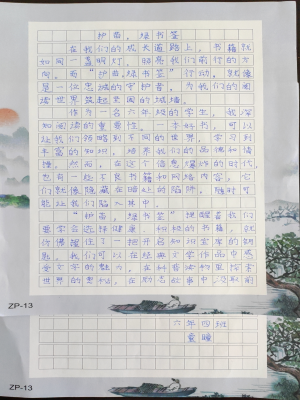 护苗，绿书签
在我们的成长道路上，书籍就
如同一盏明灯，照亮我们前行的方
向。而“护苗，绿书签”行动，就像
是一位忠诚的守护者，为我们的阅
读世界筑起坚固的城墙。
作为一名六年级的学生，我深
知阅读的重要性。一本好书，可以
让我们领略到不同的世界，学习到
丰富的知识，培养我们的品德和情
操。然而，在这个信息爆炸的时代，
也有一些不良书籍和网络内容，它
们就像隐藏在暗处的陷阱，随时可
能让我们陷入其中。
“护苗，绿书签”提醒着我们
要学会选择健康、积极的书籍，就
仿佛握住了一把开启知识宝库的钥
匙。我们可以在经典文学作品中感
受文字的魅力，在科普读物里探索
世界的奥秘，在励志故事中汲取前
ZP-13
六年四班
ZP-13